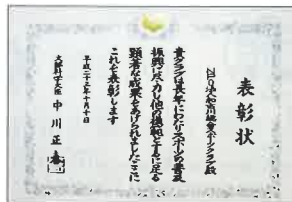 表彰状
NPO法人 総合スポーツクラブ殿
貴クラブは長年にわたりスポーツの普及
振興に尽力し他の模範とするに足る
顕著な成果をあげられましたここに
これを表彰します
平成二十三年十月十日
文部科学大臣 中川正春